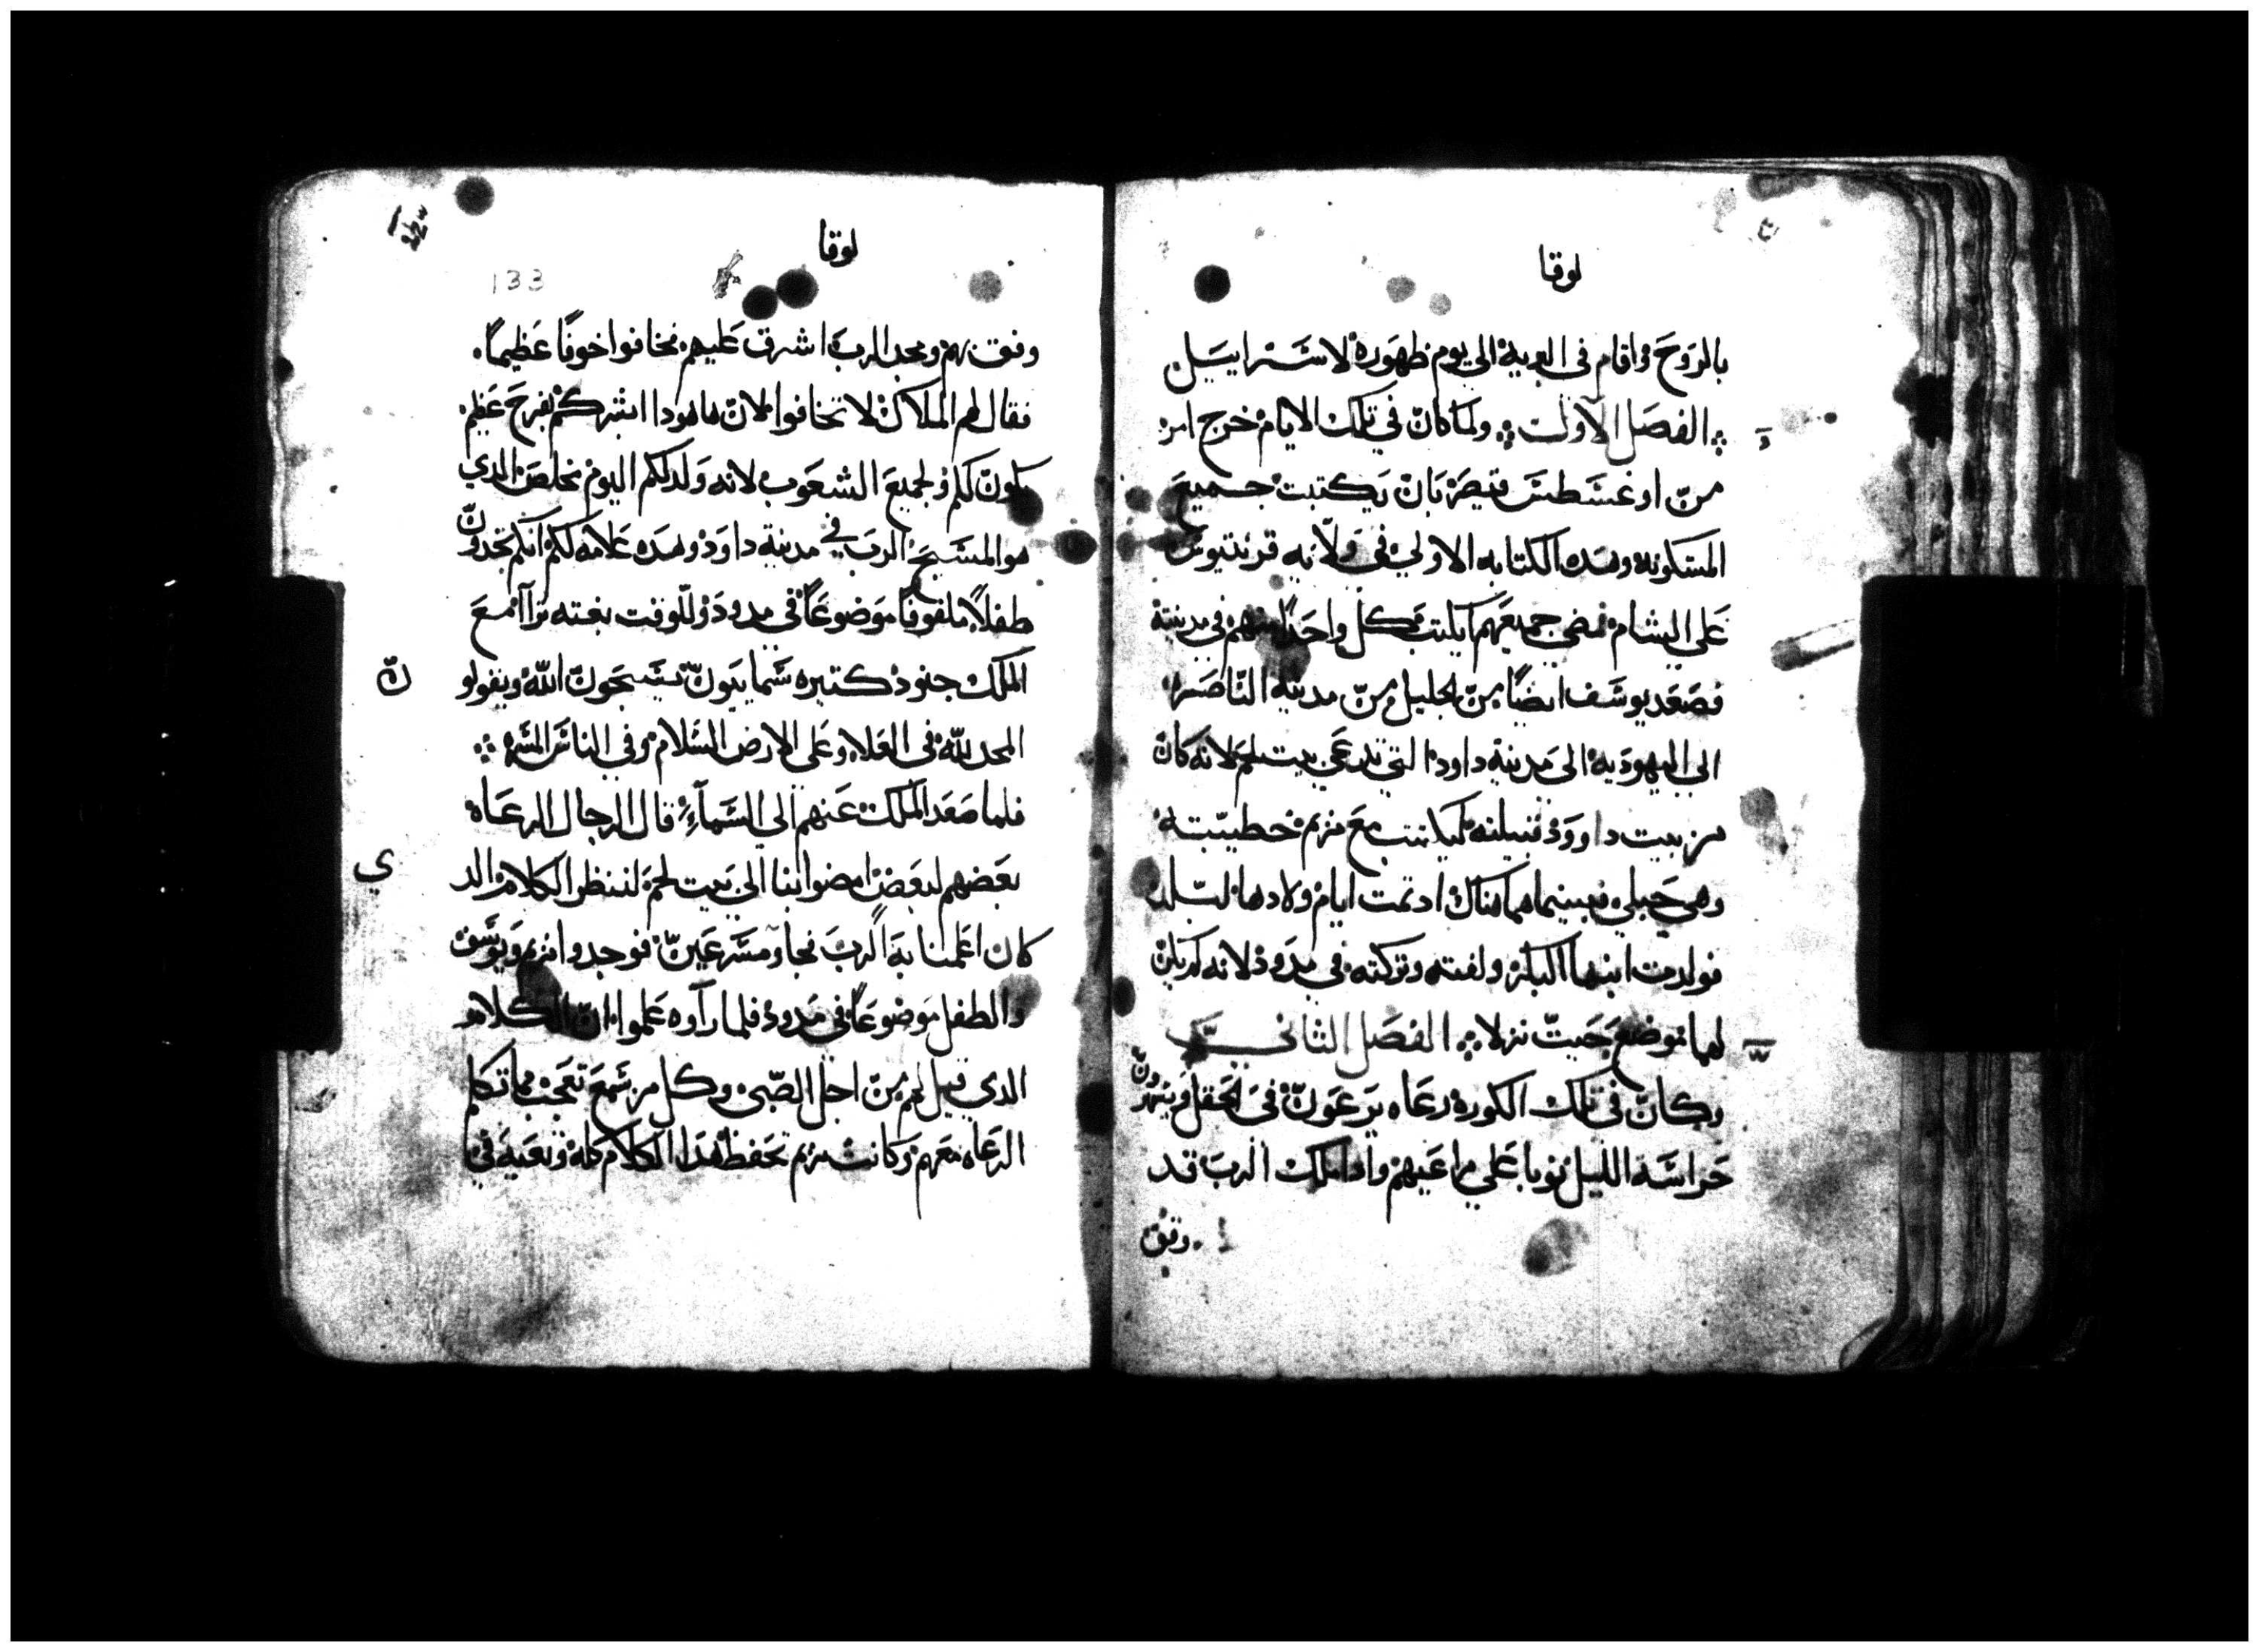 لوقا
بالروح واقام في البرية الى يوم ظهوره لاسراييل
الفصل الاول ولما كان في تلك الايام خرج امر
من اوغسطس قيصر بان يكتب جميع
المسكونة وهده الكتابه الاولي في ولايه قرينيوس
على الشام فمضي جميعهم ليكتب كل واحدا منهم في مدينة
فصعد يوسف ايضا من الجليل من مدينة الناصرة
الى اليهودية الى مدينة داود التي تدعي بيت لحم لانه كان
من بيت داوود قبيلته ليكتب مع مريم خطيبته
وهي حبلي فبينما هما هناك اد تمت ايام ولادها لتلد
فولدت ابنها البكر ولفته وتركته في مدود لانه لم يكن
لهما موضع حيث نزلا الفصل الثاني
وكان في تلك الكورة رعاه يرعون في الحقل ويسهرون
حراسة الليل نوبا علي مراعيهم وادا ملاك الرب قد
وقف
لوقا
133
وقف بهم ومجد الرب اشرق عليهم فخافوا خوفا عظيما
فقال لهم الملاك لا تخافوا لان هاهودا ابشركم بفرح عظيم
يكون لكم ولجميع الشعوب لانه ولد لكم اليوم مخلص الدي
هو المسيح الرب في مدينة داود وهده علامه لكم انكم تجدون
طفلا ملفوفا موضوعا في مدود وللوقت بغته تراا مع
الملاك جنود كتيره سماييون يسبحون الله ويقولو
المجد لله في العلا وعلى الارض السلام وفي الناس المسره
فلما صعد الملاك عنهم الي السماء قال الرجال الرعاه
بعضهم لبعض امضوا بنا الي بيت لحم لننظر الكلام الد
كان اعلمنا به الرب فجاو مسرعين فوجدوا مريم ويوسف
والطفل موضوعا في مدود فلما رآوه علموا ان الكلام
الدي قيل لهم من اجل الصبي وكل من سمع تعجب مما تكلم
الرعاه معهم وكانت مريم تحفظ هدا الكلام كله وتعيه في